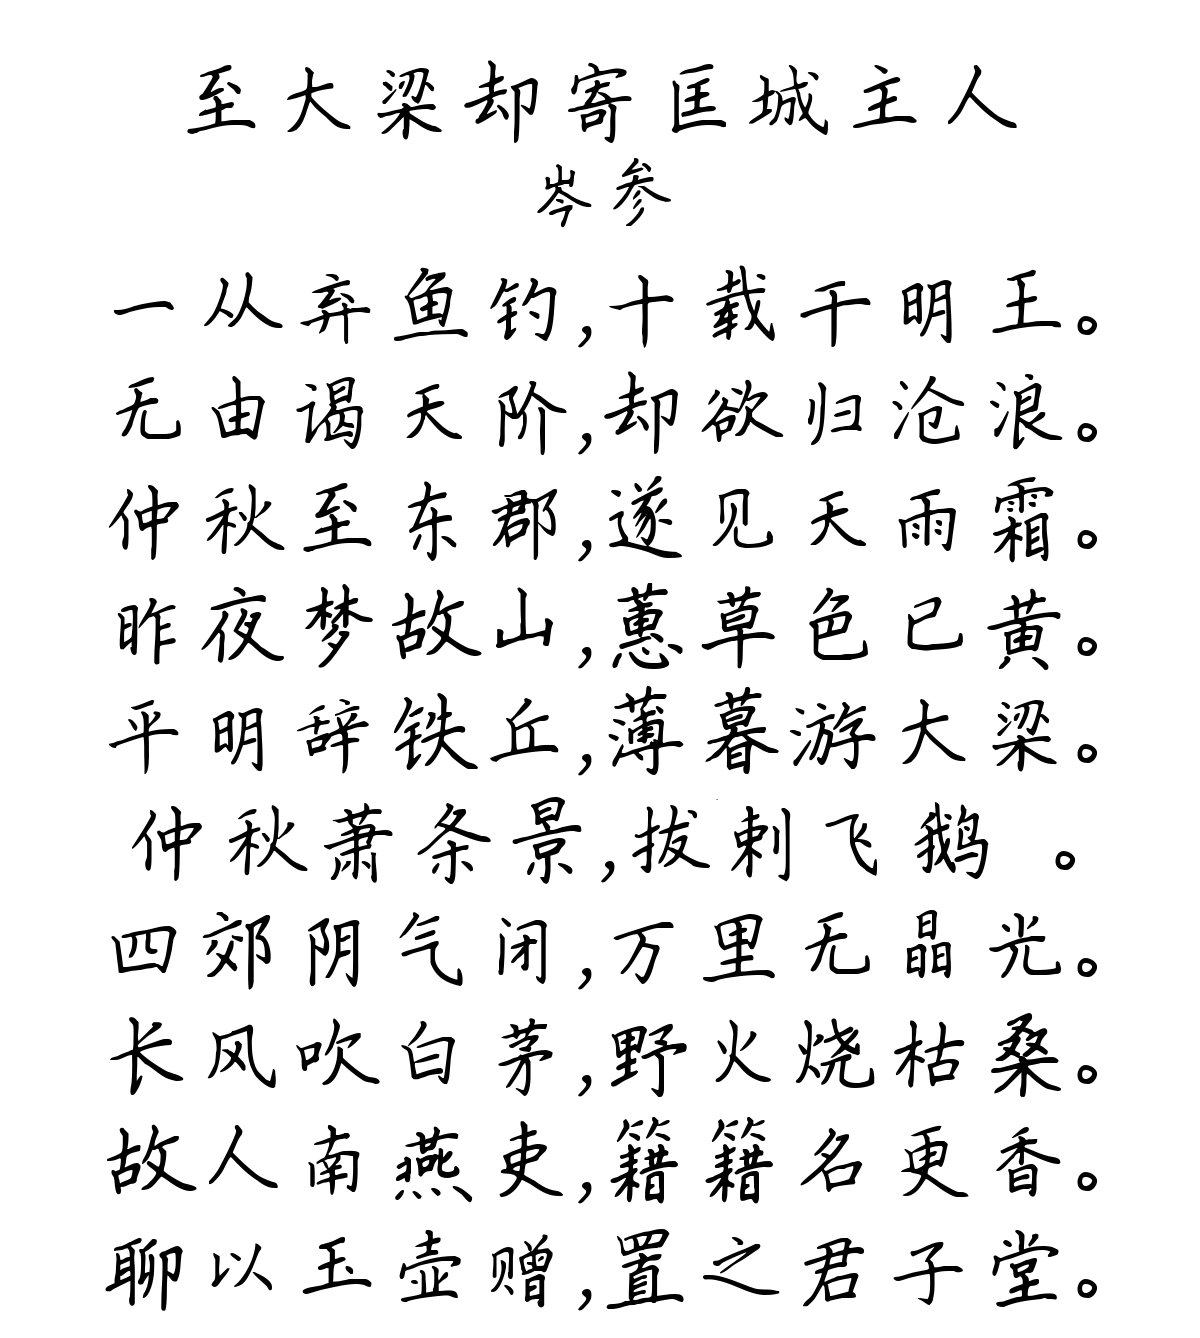 至大梁却寄匡城主人
岑参
一从弃鱼钓,十载干明王。
无由谒天阶,却欲归沧浪。
仲秋至东郡,遂见天雨霜。
昨夜梦故山,蕙草色已黄。
平明辞铁丘,薄暮游大梁。
仲秋萧条景,拔剌飞鹅 。
四郊阴气闭,万里无晶光。
长风吹白茅,野火烧枯桑。
故人南燕吏,籍籍名更香。
聊以玉壶赠,置之君子堂。